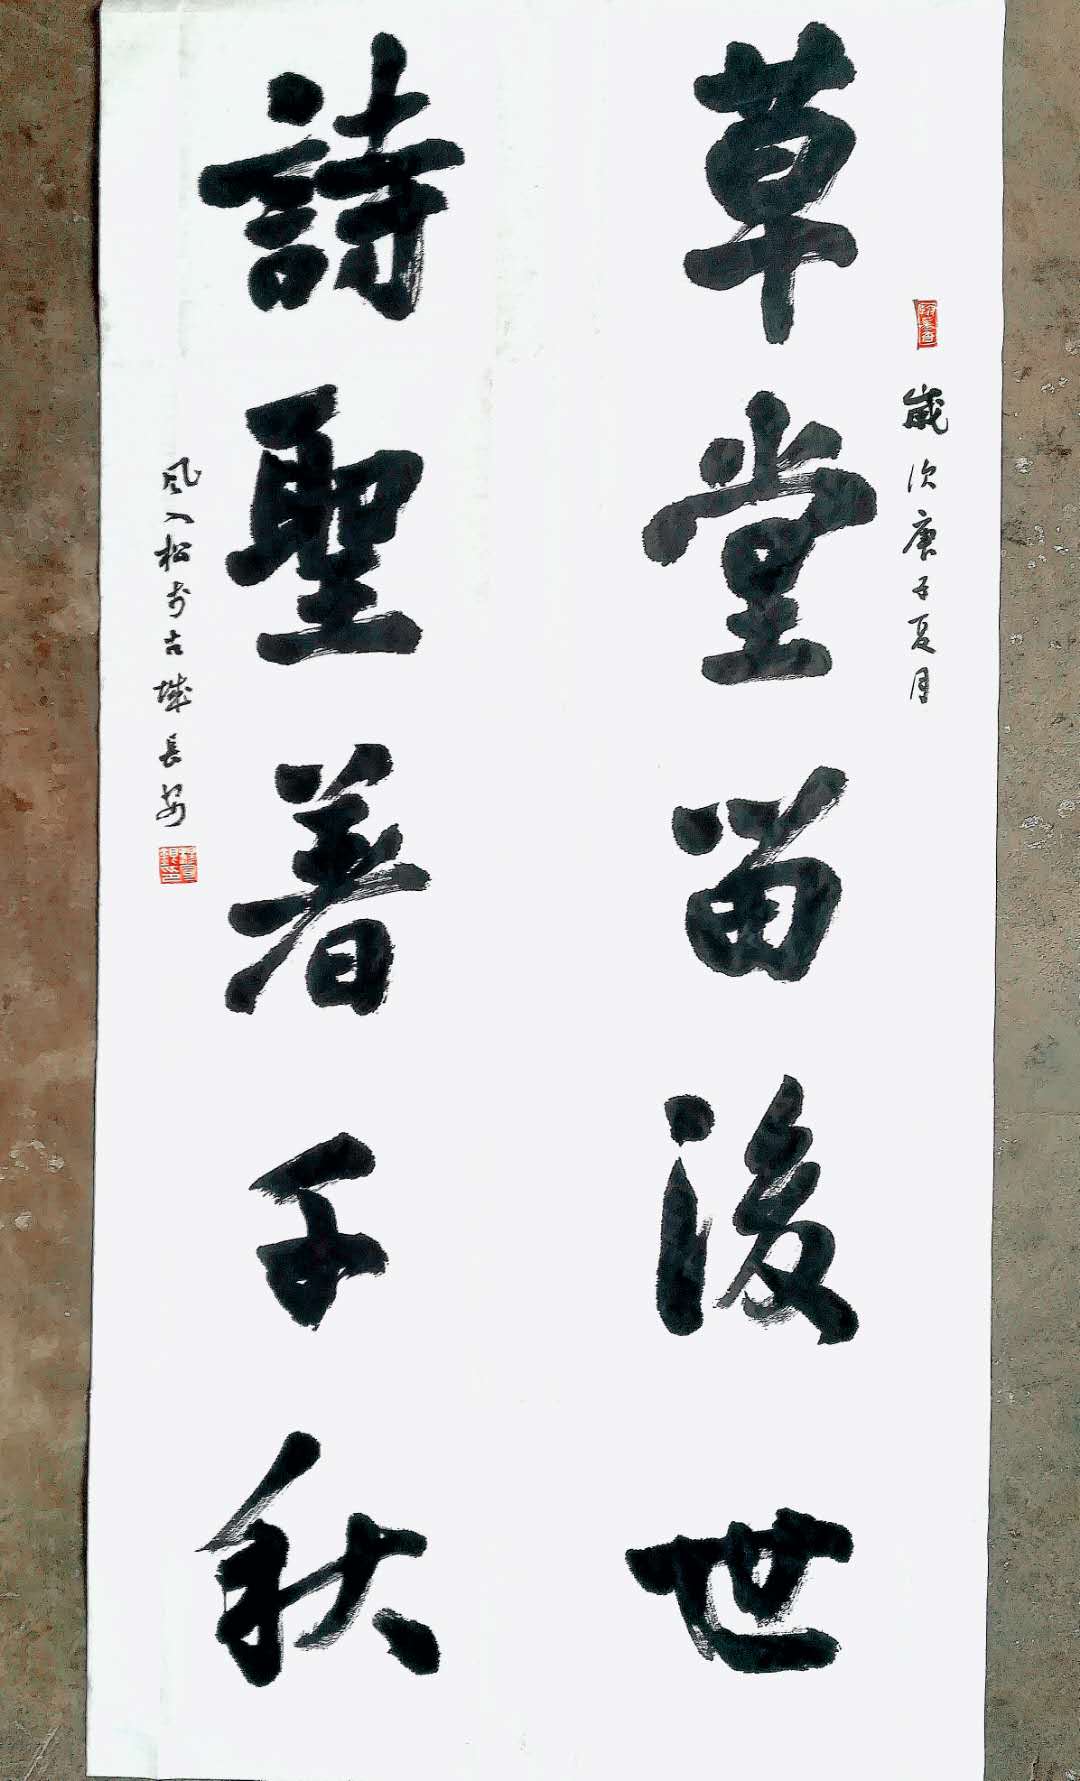 歲次庚子夏月
草堂留後世
詩聖著千秋
风入松於古城長安